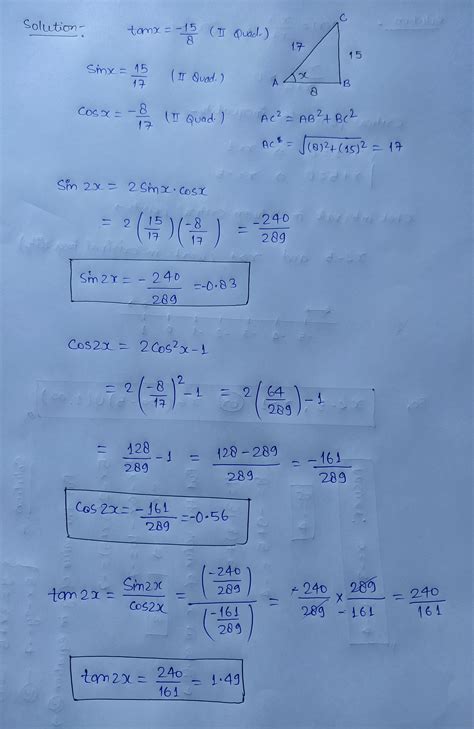 Solution:- tanx = -15/8 (II Quad.)
C
17
15
A
x
B
8
Sinx = 15/17 (II Quad.)
Cosx = -8/17 (II Quad.)
AC² = AB² + BC²
AC = √(8)²+(15)² = 17
Sin 2x = 2 Sinx·cosx
= 2 (15/17) (-8/17) = -240/289
Sin2x = -240/289 = -0.83
Cos2x = 2Cos²x-1
= 2 (-8/17)² -1 = 2 (64/289) -1
= 128/289 -1 = 128-289/289 = -161/289
Cos2x = -161/289 = -0.56
tan2x = Sin2x/cos2x = (-240/289)/(-161/289) = -240/289 × 289/-161 = 240/161
tan2x = 240/161 = 1.49